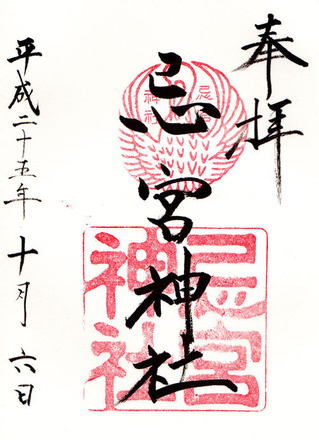 奉拝
忌宮神社
忌宮
神社
忌宮
神社
平成二十五年十月六日